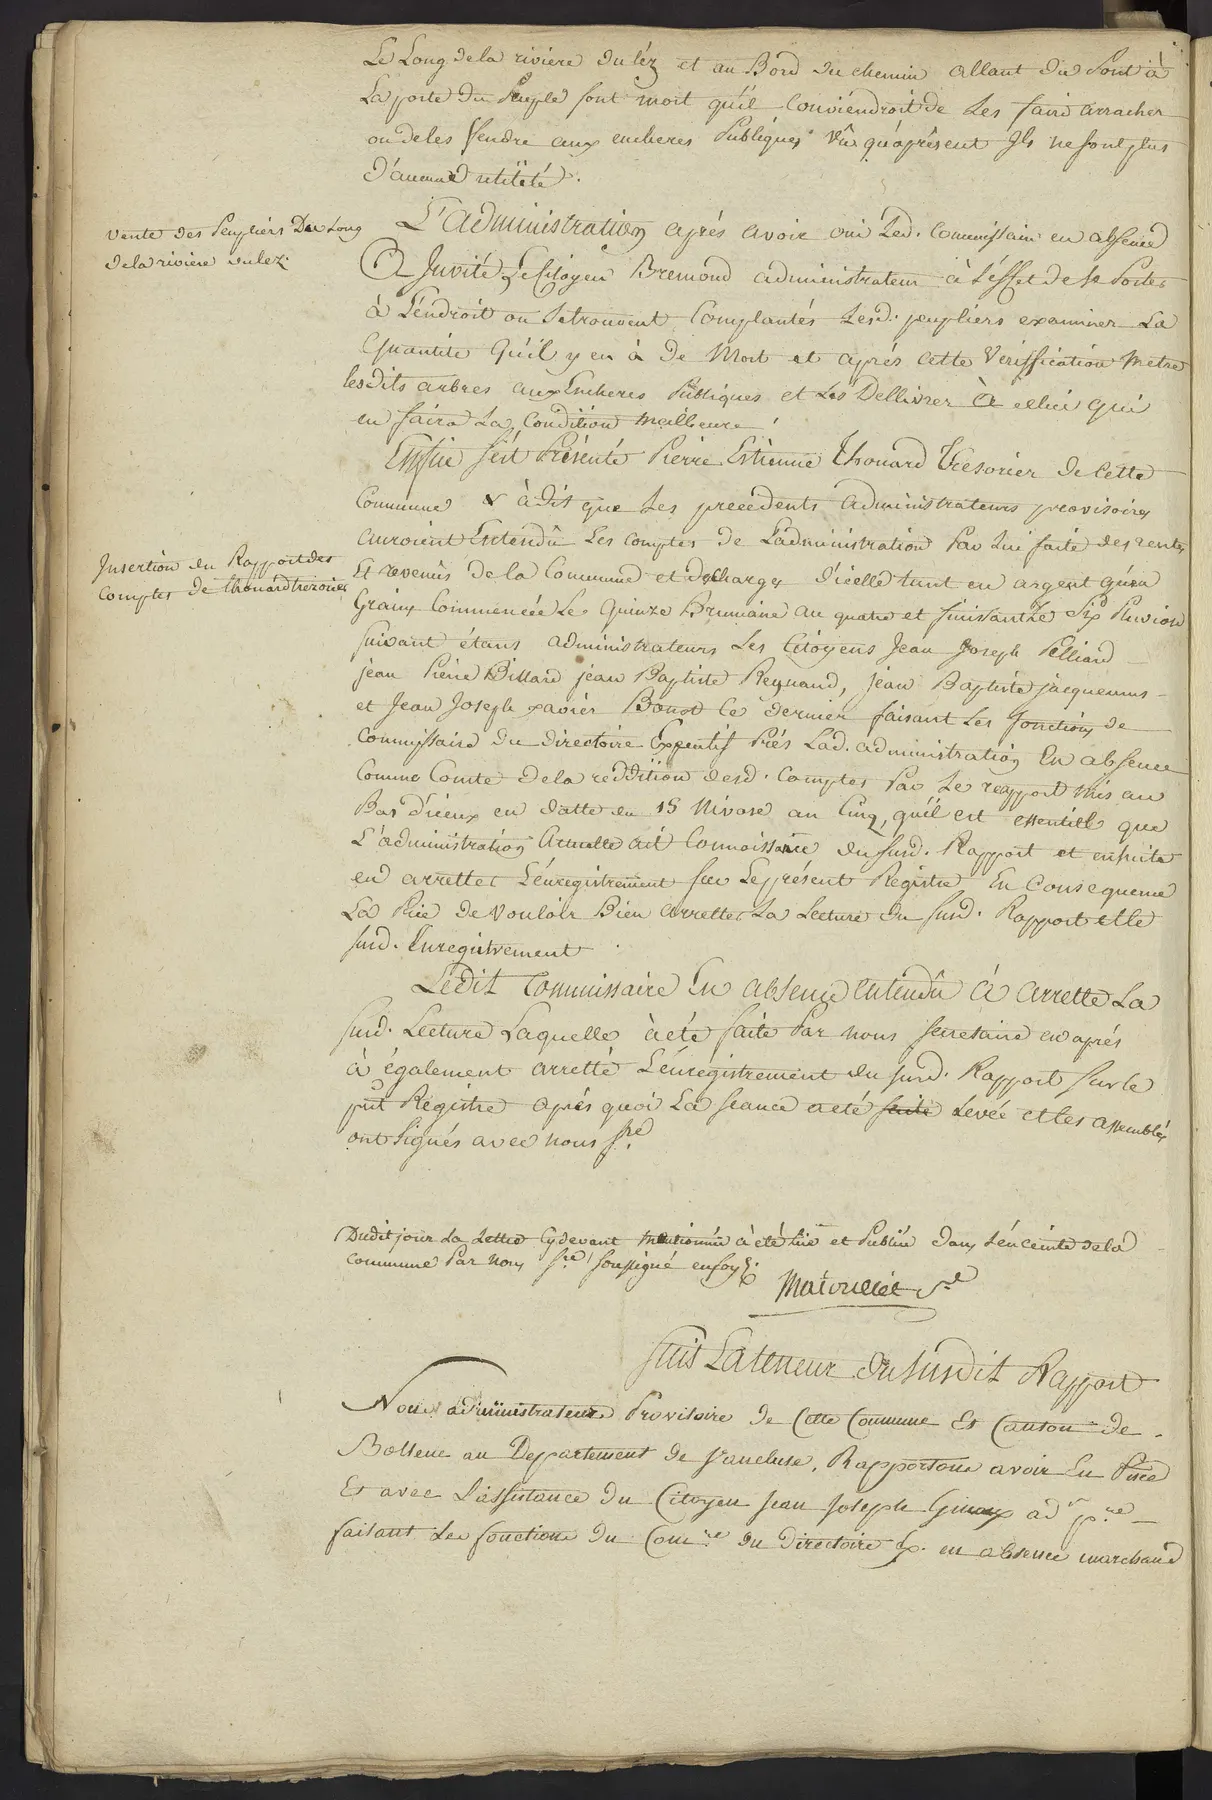 Le Long de la riviere du léz et au Bord du chemin allant du Pont à
La porte du Peuple sont mort qu'il Conviéndroit de Les faire arracher
ou de les Vendre aux encheres Publiques vû qu'aprêsent Ils ne sont plus
d'aucune utilité.
vente des Peupliers Du Long
de la riviere du lez.
L'administration aprés avoir oui Led. Commissaire en absence
à Invité Le Citoyen Bremond administrateur à L'éffet de se Porter
à L'éndroit ou se trouvent Complantés Lesd. peupliers examiner La
Quantité Qu'il y en à de Mort et aprés cette Veriffication Metre
lesdits arbres aux Encheres Publiques et Les Dellivrer à cellui qui
en faira La Condition Meilleure.
Ensuite s'est Présenté Pierre Estienne Thouard Trésorier de cette
Commune & à dit que Les precedents administrateurs provisoires
auroient Entendû Les Comptes de L'administration Par Lui faite des rentes
Insertion du Rapport des
comptes de thouard trezorier
Et revenûs de la Commune et decharges d'icelle tant en argent qu'en
Grains Commencée Le Quinze Brumaire au quatre et finissant Le Six Pluviose
suivant étans administrateurs Les Citoyens Jean Joseph Pelliard
jean Pierre Billard jean Baptiste Reynaud, jean Baptiste jacquemus
et Jean Joseph xavier Bonot ce dernier faisant Les fonctions de
Commissaire du directoire Executif Prés Lad. administration En absence
Comme Comte de la reddition desd. Comptes Par Le rapport mis au
Bas d'iceux en datte du 15 Nivose an Cinq, qu'il est essentiel que
L'administration Actuelle ait Connoissance du susd. Rapport et ensuite
en arretter L'énregistrement sur Le présent Registre En Consequence
La Prie de Vouloir Bien arretter La Lecture du susd. Rapport et le
susd. Enregistrement
Ledit Commissaire En absence entendû à arretté La
susd. Lecture Laquelle à été faite Par nous secretaire et aprés
à également arretté L'énrégistrement du susd. Rapport sur le
pnt Régistre aprés quoi La seance a eté Levée et les assemblés
ont signés avec nous sre
Dudit jour La Lettre Cydevant mentionnée à été lüe et Publiée dans L'énceinte de la
commune Par Nous sre soussigné en foy.
suit La teneur du susdit Rapport
Nous administrateurs Provisoire de Cette Commune Et Canton de
Bollene au Departement de Vaucluse, Rapportons avoir En Pnce
Et avec L'assistance du Citoyen Jean Joseph adr pre
faisant Les fonctions du Comre du Directoire Ex. en absence marchand